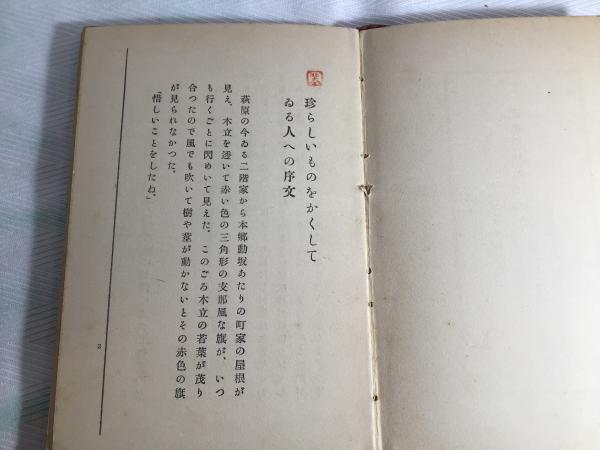 珍らしいものをかくして
ゐる人への序文
萩原の今ゐる二階家から本郷動坂あたりの町家の屋根が
見え、木立を透いて赤い色の三角形の支那風な旗が、いつ
も行くごとに閃めいて見えた。このごろ木立の若葉が茂り
合つたので風でも吹いて樹や莖が動かないとその赤色の旗
が見られなかつた。
「惜しいことをしたね。」
3